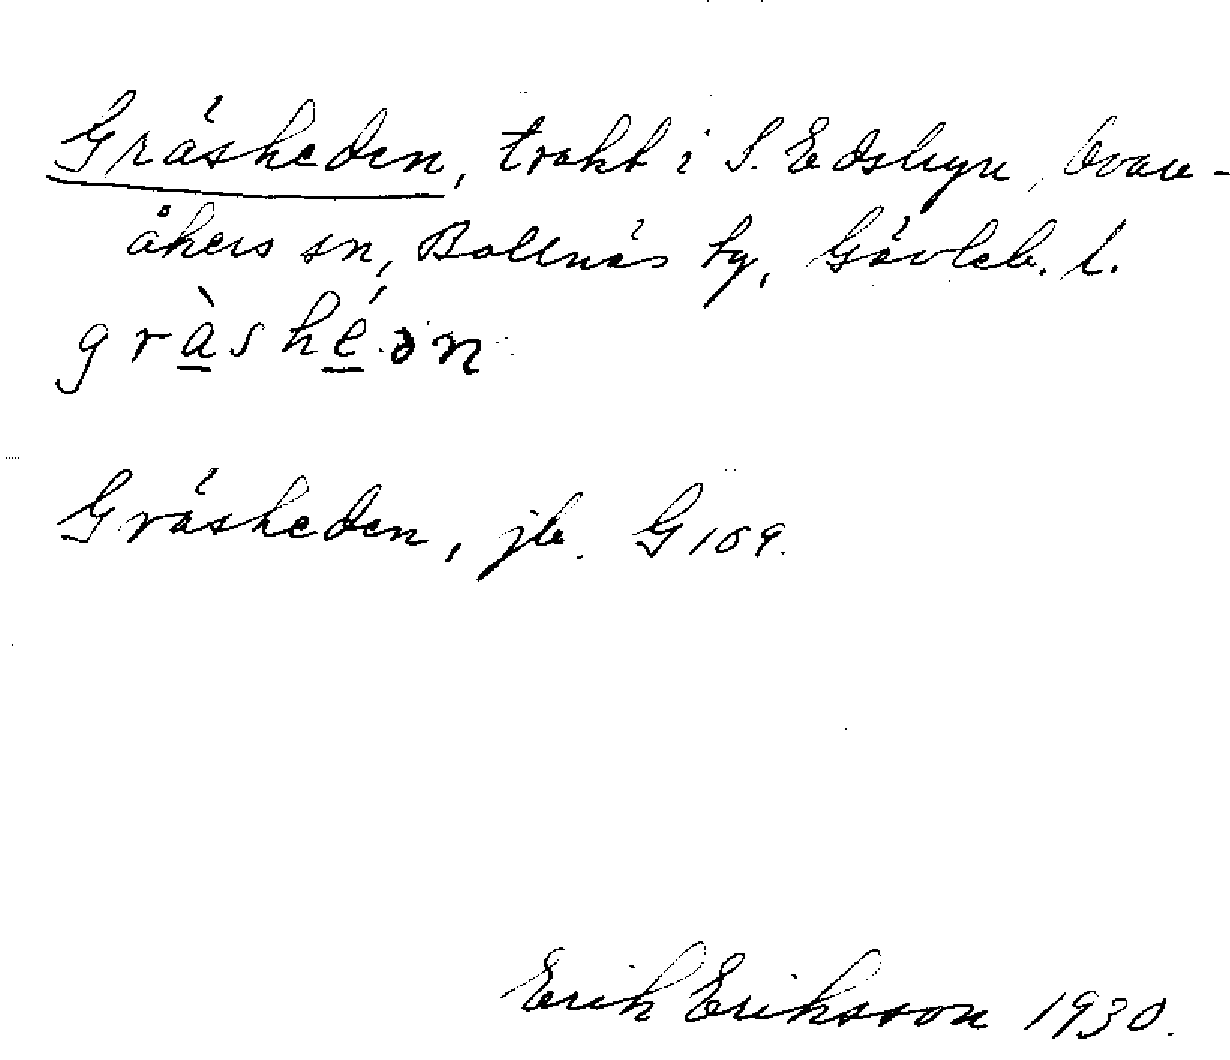 Gräsheden, trakt i S. Edsbyn, Ovan-
åkers sn, Bollnäs tg, Gävleb. l.
gràshé.ən
Gräsheden, jb. G 109.
Erik Eriksson 1930.